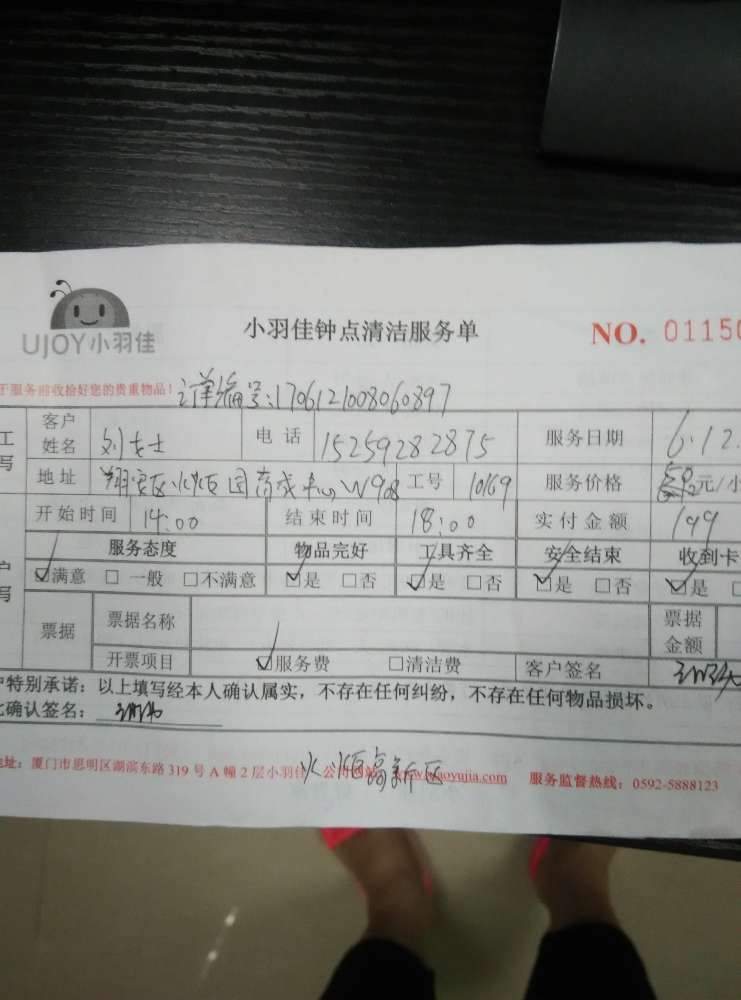 UJOY小羽佳
小羽佳钟点清洁服务单
NO. 01150
服务前收拾好您的贵重物品！ 订单编号:1706121008060897
工 客户姓名 刘女士 电话 15259282875 服务日期 6.12
写 地址 翔安区火炬园商务中心W908 工号 10169 服务价格 元/小
开始时间 14:00 结束时间 18:00 实付金额 149
户 服务态度 物品完好 工具齐全 安全结束 收到卡
写 ☑满意 □一般 □不满意 ☑是 □否 ☑是 □否 ☑是 □否 ☑是
票据 票据名称 票据金额
开票项目 ☑服务费 □清洁费 客户签名
户特别承诺：以上填写经本人确认属实，不存在任何纠纷，不存在任何物品损坏。
确认签名：
地址：厦门市思明区湖滨东路319号A幢2层小羽佳 公司网站 www.xiaoyujia.com 服务监督热线：0592-5888123
火炬高新区